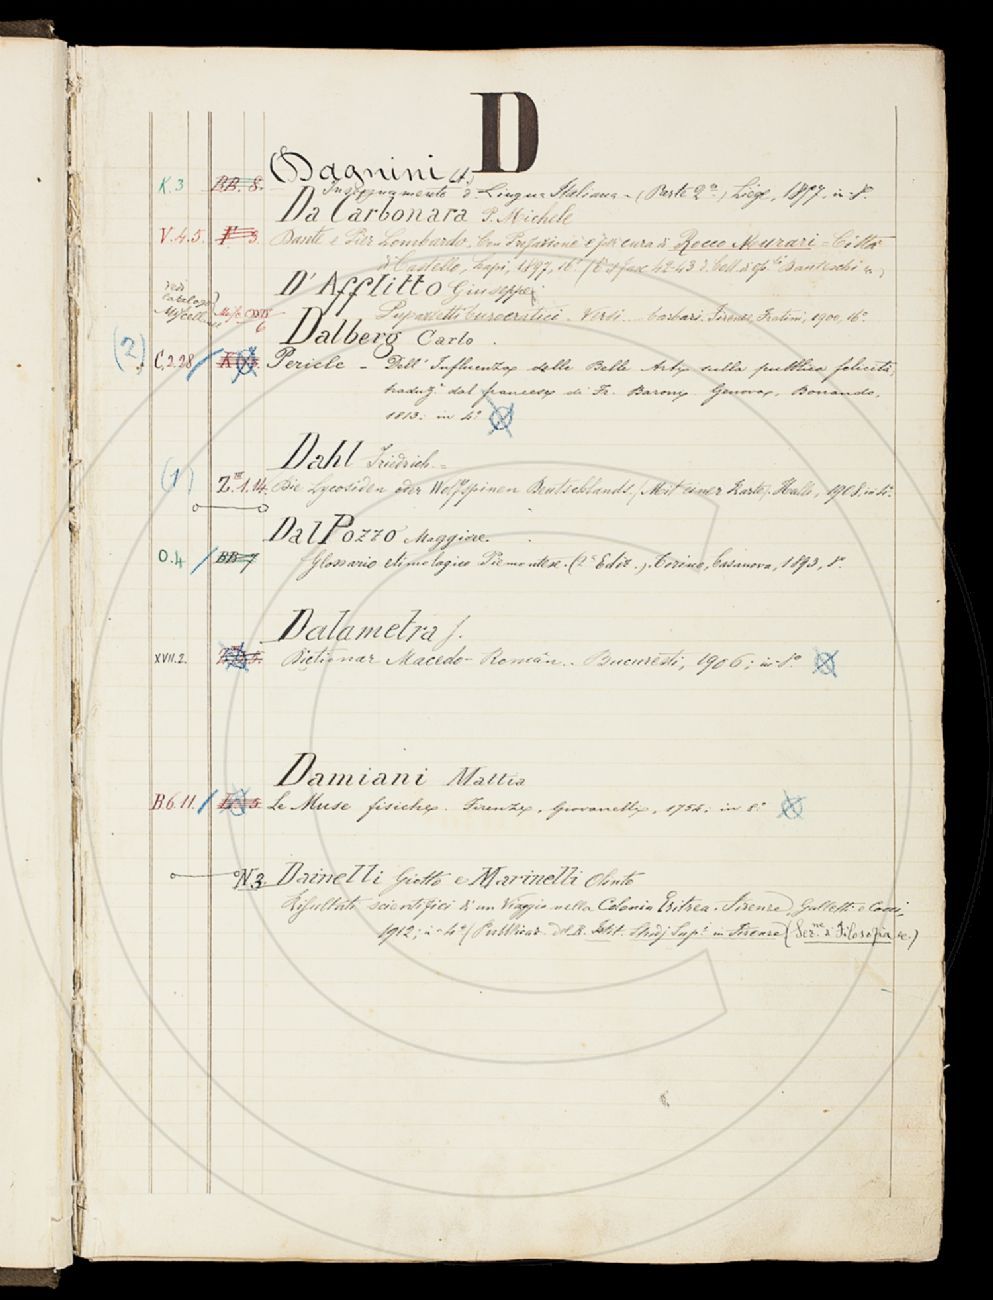 D
Dagnini
K.3 BB. 8. Insegnamento d. Lingua Italiana - (Parte 2a) Liege, 1897, in-8°.
Da Carbonara P. Michele
V.4.5. 3. Dante e Pier Lombardo. Con Prefazione e per cura di Rocco Murari - Città
di Castello, Lapi, 1897, 16° (42-43 d. Coll. di op. Danteschi)
D'Afflitto Giuseppe
vedi
Catalogo
Miscell. Misc. 6 Pupazzetti burocratici. Versi barbari. Firenze, Fratini, 1900, 16°.
Dalberg Carlo.
(2) C.2.28 Pericle - Dell' Influenza delle Belle Arti sulla pubblica felicità,
traduz. dal francese di Fr. Barony. Genova, Bonando,
1813: in 4°
Dahl Friedrich.=
(1) Z.III.1.14. Die Lycosiden oder Wolfspinen Deutschlands. (Mit einer Karte). Halle, 1908. in 4°.
Dal Pozzo Maggiore.
O.4 / BB 7 Glossario etimologico Piemontese. (2a Ediz.). Torino, Casanova, 1893, 8°.
Dalametra I.
XVII.2. Dicționar Macedo-Român. Bucuresti, 1906; in-8°.
Damiani Mattia
B6.11. / 5 Le Muse fisiche. Firenze, Giovanelli, 1754: in 8°
N.3 Dainelli Giotto e Marinelli Olinto
Risultati scientifici di un Viaggio nella Colonia Eritrea. Firenze, Galletti e Cocci,
1912; in-4° (Pubblicaz. del R. Istit. Studj Sup. in Firenze (Sez.ne di Filosofia ec.)